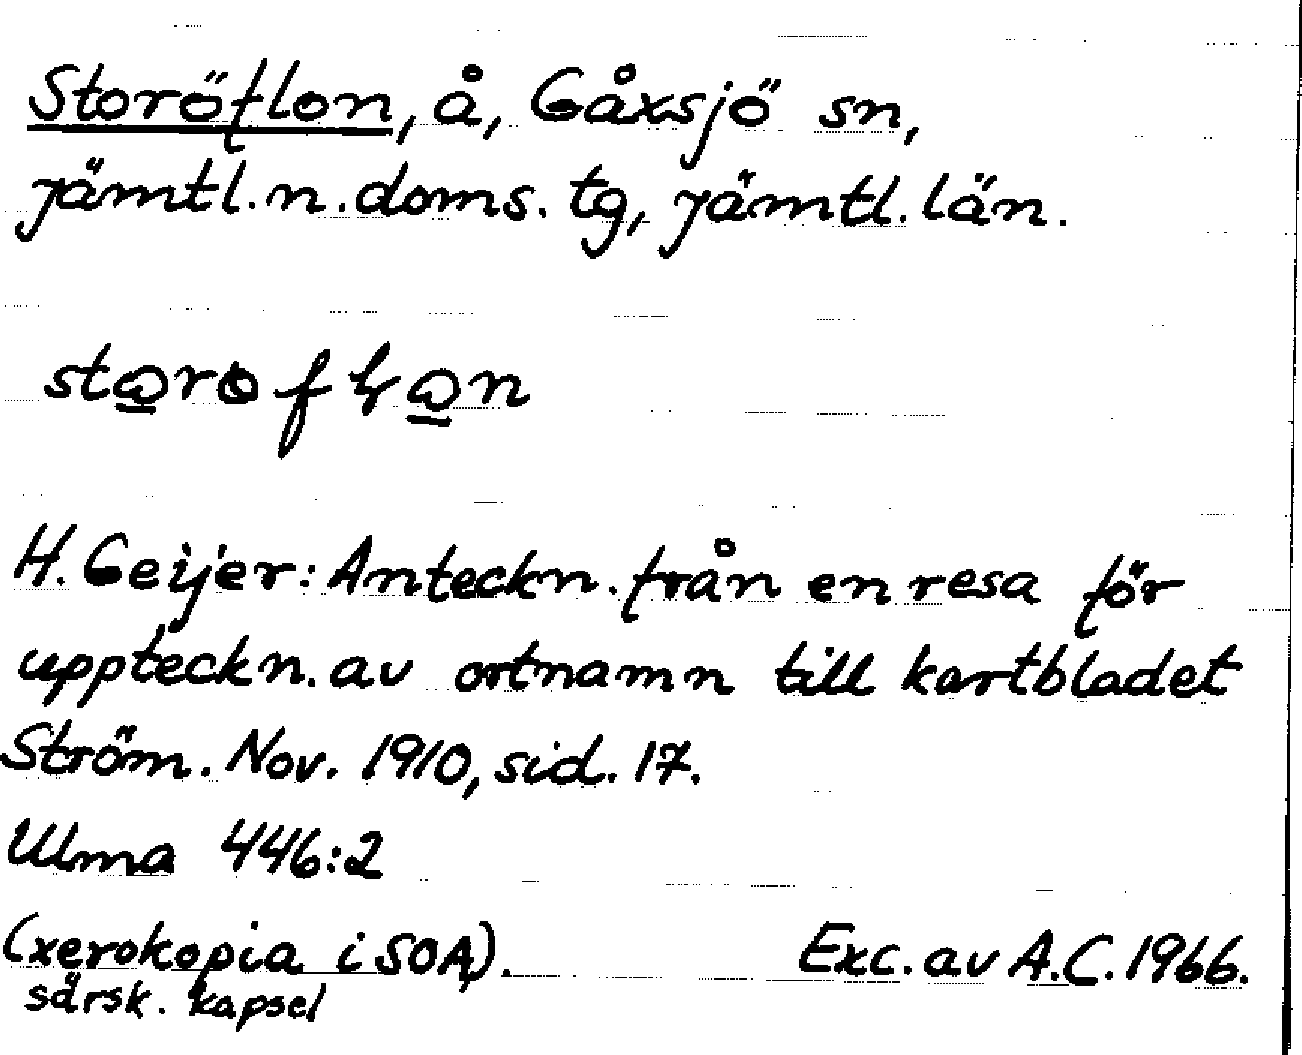 Storöflon, å, Gåxsjö sn,
Jämtl. n. doms. tg, Jämtl. län.
H. Geijer: Anteckn. från en resa för
uppteckn. av ortnamn till kartbladet
Ström. Nov. 1910, sid. 17.
Ulma 446:2
(xerokopia i SOA). Exc. av A.C. 1966.
särsk. kapsel